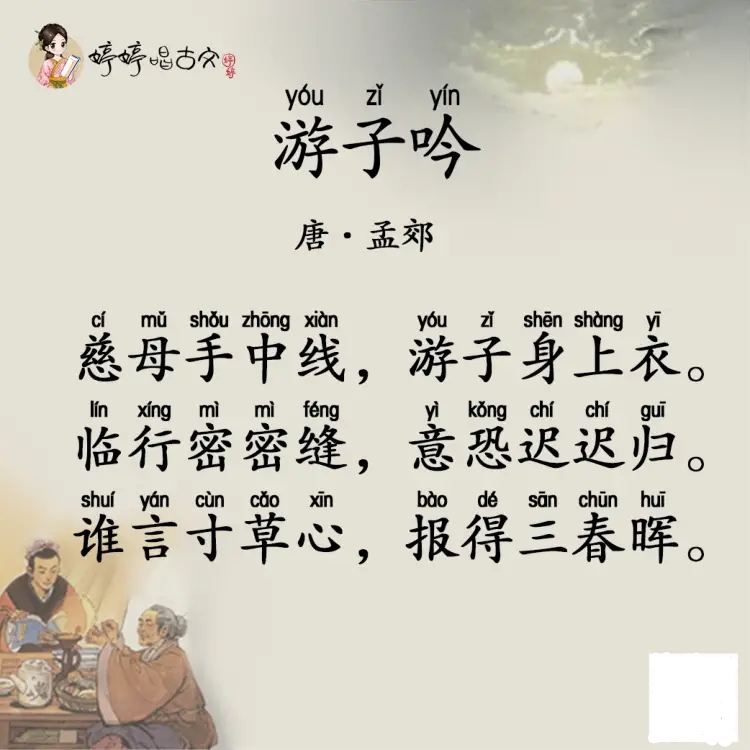 婷婷唱古文
yóu zǐ yín
游子吟
唐·孟郊
cí mǔ shǒu zhōng xiàn yóu zǐ shēn shàng yī
慈母手中线，游子身上衣。
lín xíng mì mì féng yì kǒng chí chí guī
临行密密缝，意恐迟迟归。
shuí yán cùn cǎo xīn bào dé sān chūn huī
谁言寸草心，报得三春晖。